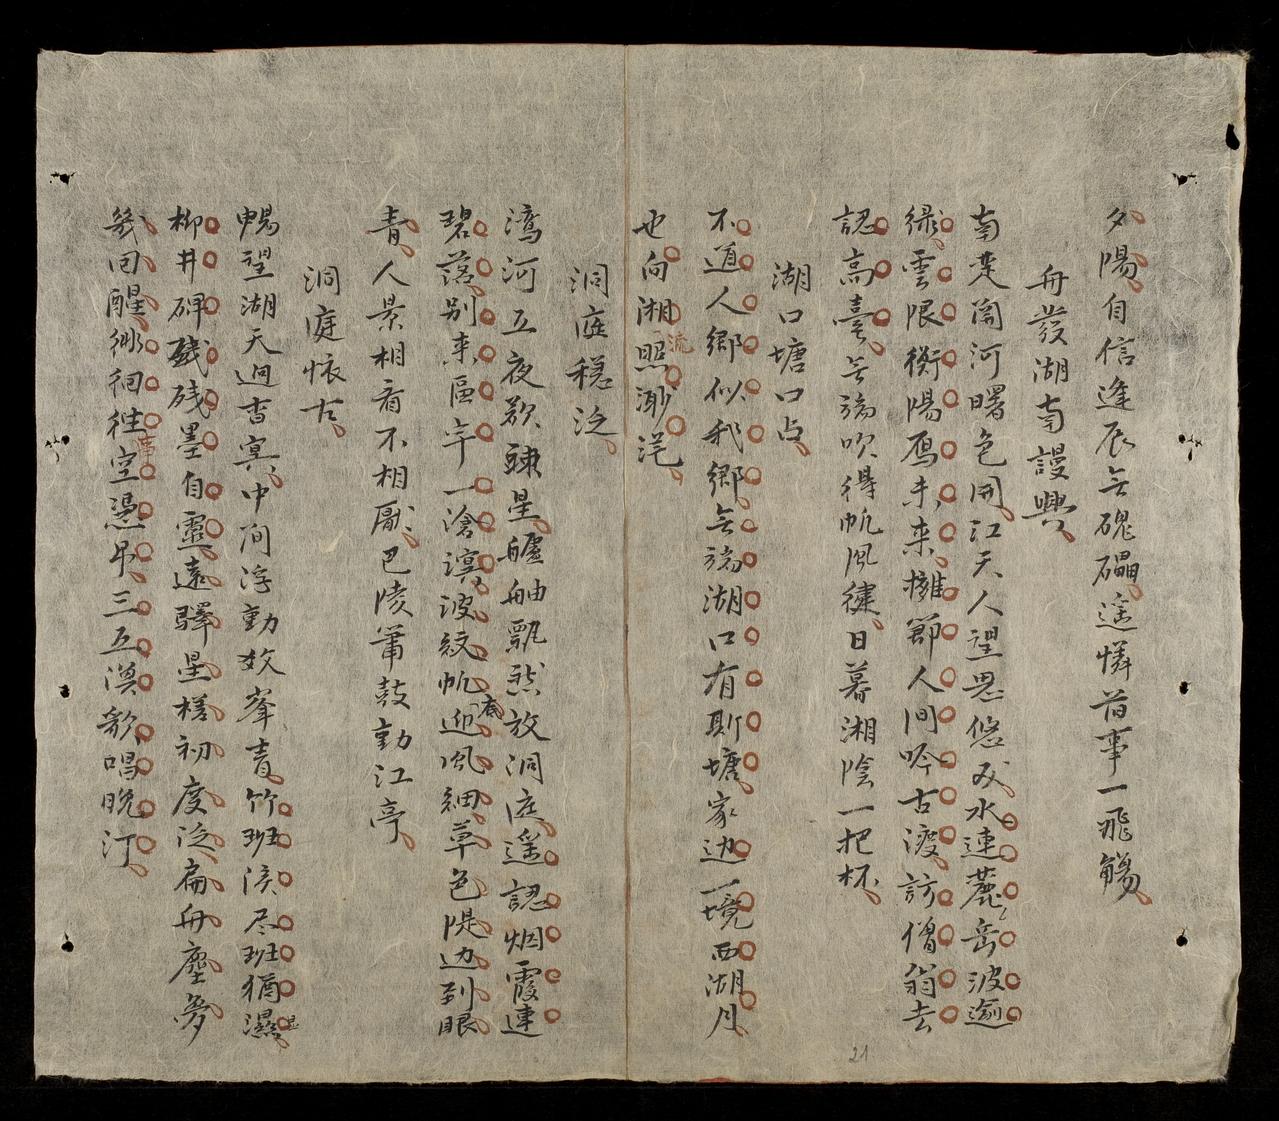 夕陽自信逢辰無磈礧遥憐昔事一飛觴
舟發湖南謾興
南楚關河曙色開江天人望思悠哉水連麓岳波逾
綠雲限衡陽鴈未來擁節人间吟古渡訪僧翁去
認高臺無端吹得帆風健日暮湘陰一把杯
湖口塘口占
不道人鄉似我鄉無端湖口有斯塘家边一境西湖月
也向湘流照渺茫
洞庭穏泛
河五夜欲疎星艫舳飄然放洞庭遥認烟霞連
碧落别来區宇一滄溟波紋帆迎風細草色隄边到眼
春
青人景相看不相厭巴陵簫鼓動江亭
洞庭懐古
暢望湖天迥杳冥中间浮動数峯青竹班淚尽班猶濕
柳井碑殘墨自靈遠驛星槎初度泛扁舟塵夢
幾回醒徘徊往事空憑吊三五漁歌唱晚汀
21